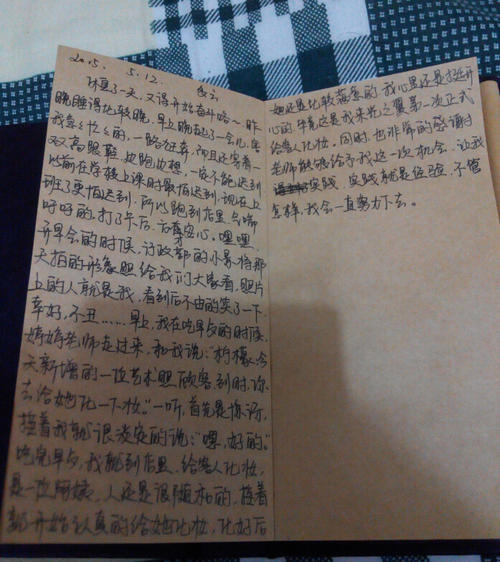 2015. 5.12. 
休息了一天，又得开始奋斗咯～昨
晚睡得比较晚，早上晚起了一会儿，害
我急急忙忙的，一路狂奔，而且还穿着一
双高跟鞋，边跑边想，一定不能迟到
以前在学校上课时最怕迟到，现在上
班了更怕迟到，所以跑到店里，气喘
呼呼的，打了卡后，才算安心。嘿嘿，
开早会的时候，行政部的小
天拍的形象照给我们大家看，照片
上的人就是我，看到后不由的笑了一下
幸好，不丑……早上，我在吃早点的时候
婷婷老师走过来，和我说：“柠檬，今
天新增的一位艺术照顾客，到时，你
去给她化一下妆。”一听，首先是惊讶，
接着我就很淡定的说：“嘿，好的。”
吃完早点，我就到店里，给客人化妆，
是一位阿姨，人还是很随和的，接着
就开始认真的给她化妆，化好后
她还是比较满意的，我心里还是挺开
心的，毕竟这是我来光之翼第一次正式
给客人化妆。同时，也非常的感谢付
老师能够给予我这一次机会，让我
实践，实践就是经验，不管
怎样，我会一直努力下去。